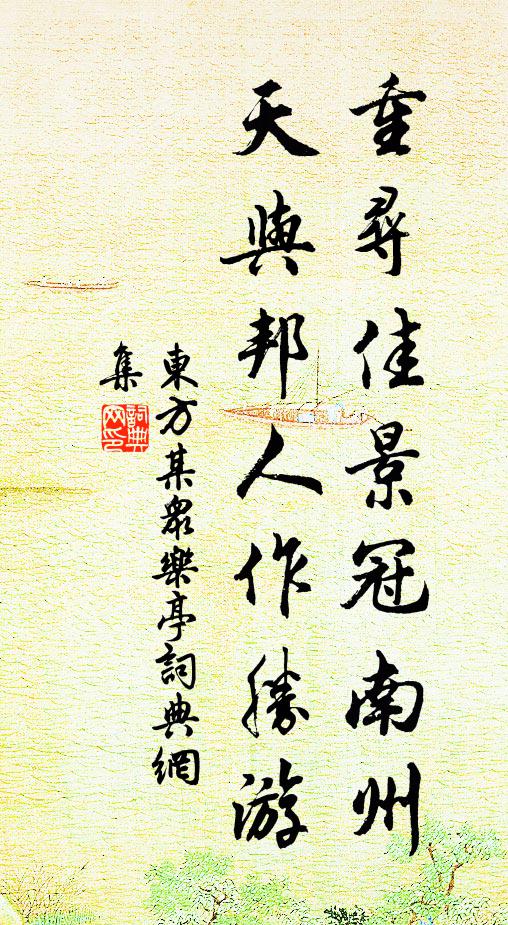 重尋佳景冠南州
天與邦人作勝游
東方某眾樂亭詞典網
集
詞典
網印